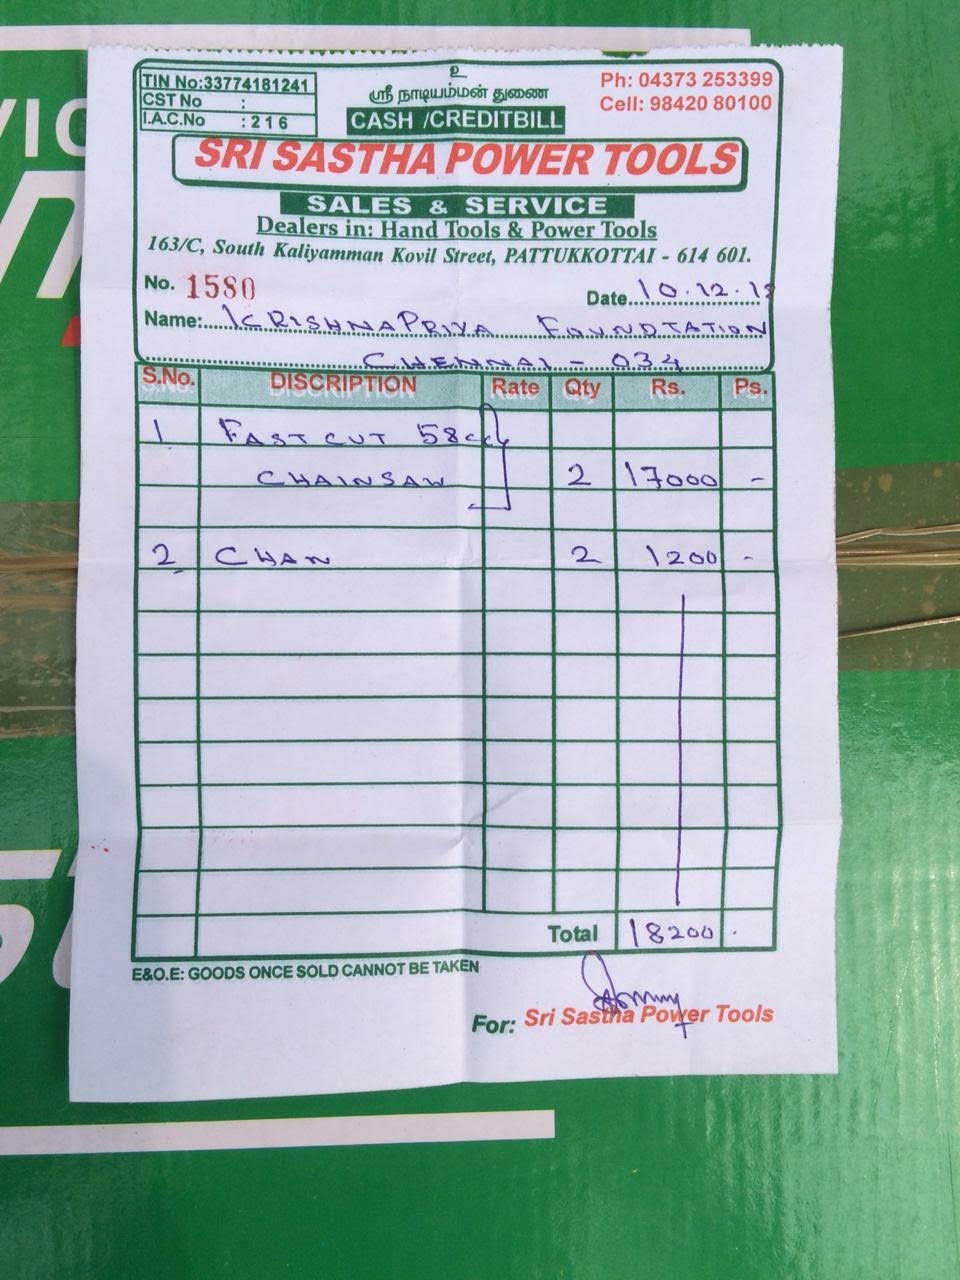 உ
TIN No:33774181241
CST No :
I.A.C.No : 216
ஸ்ரீ நாடியம்மன் துணை
CASH /CREDITBILL
Ph: 04373 253399
Cell: 98420 80100
SRI SASTHA POWER TOOLS
SALES & SERVICE
Dealers in: Hand Tools & Power Tools
163/C, South Kaliyamman Kovil Street, PATTUKKOTTAI - 614 601.
No. 1580 Date 10.12.18
Name: KRISHNAPRIYA FOUNDTATION
CHENNAI - 034
S.No. DISCRIPTION Rate Qty Rs. Ps.
1 FAST CUT 58cc
CHAINSAW 2 17000 -
2 CHAN 2 1200 -
Total 18200 .
E&O.E: GOODS ONCE SOLD CANNOT BE TAKEN
For: Sri Sastha Power Tools